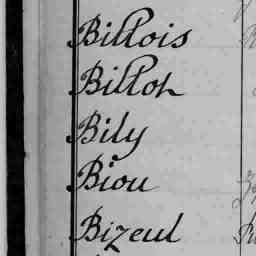 Billois
Billon
Bily
Biou
Bizeul